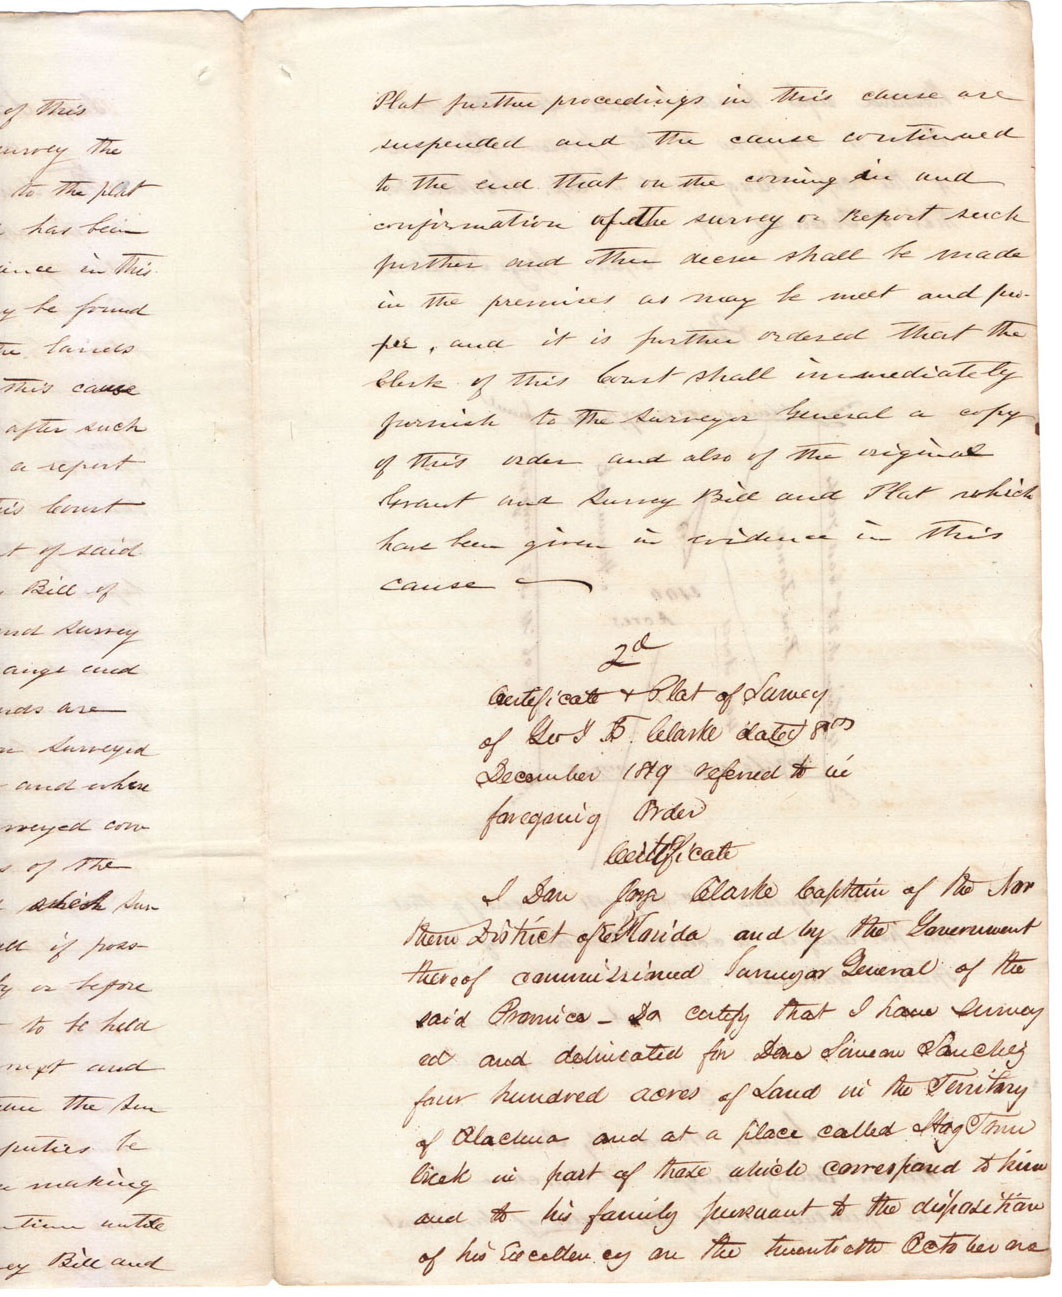 of this
survey the
to the plat
has been
in this
be found
lands
this cause
after such
a report
Court
of said
Bill of
and survey
and
are
surveyed
and where
of the
which Sur
if poss
or before
to be held
next and
the Sur
be
making
until
Bill and
Plat further proceedings in this cause are
suspended and the cause continued
to the end that on the coming in and
confirmation of the survey or report such
further and other decree shall be made
in the premises as may be meet and pro-
per, and it is further ordered that the
Clerk of this Court shall immediately
furnish to the Surveyor General a copy
of this order and also of the original
Grant and Survey Bill and Plat which
have been given in evidence in this
cause
2d
Certificate & Plat of Survey
of Geo I F. Clarke dated 8th
December 1819 referred to in
foregoing Order
Certificate
I Don Jorge Clarke Captain of the Nor
thern District of E Florida and by the Government
thereof commissioned Surveyor General of the
said Province - Do certify that I have survey
ed and delineated for Don Simeon Sanchez
four hundred acres of Land in the Territory
of Alachua and at a place called Hog Town
Creek in part of those which correspond to him
and to his family pursuant to the disposition
of his Excellency on the twentieth October are